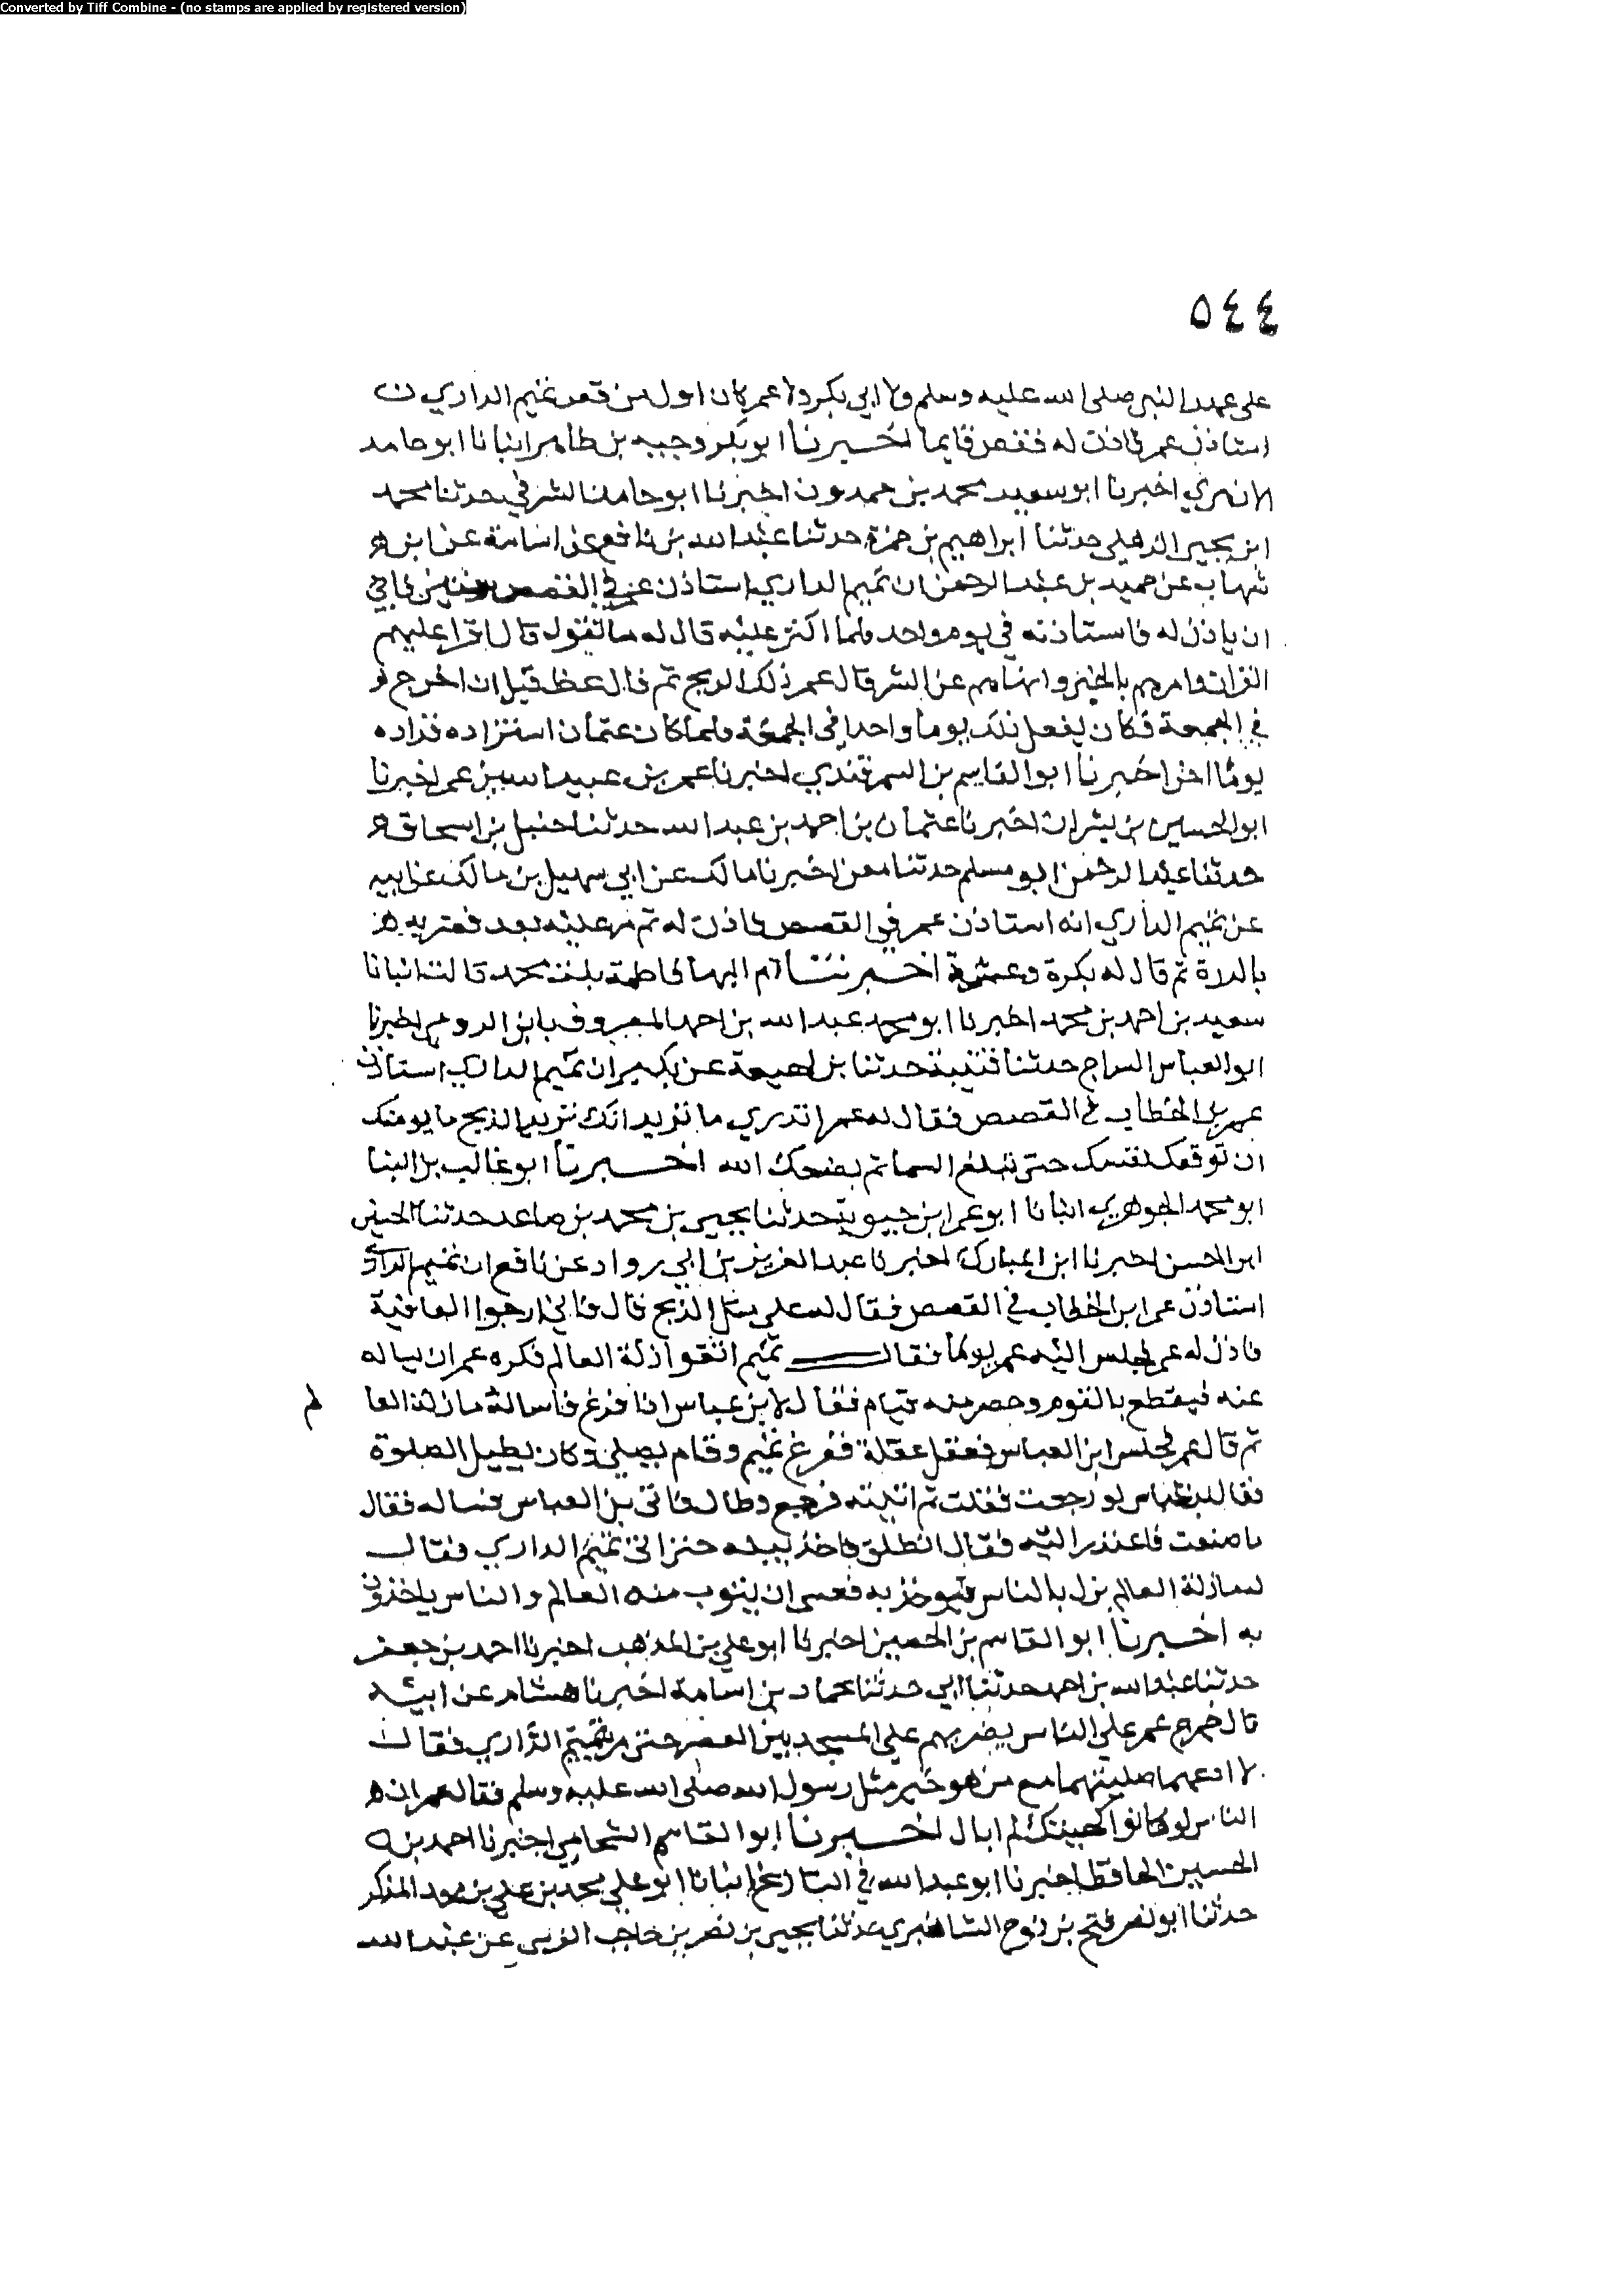 Converted by Tiff Combine - (no stamps are applied by registered version)
٥٤٤
على عهد النبي صلى الله عليه وسلم ولا ابي بكر ولا عمر كان اول من قص تميم الداري
استاذن عمر فاذن له فقص قايما اخبرنا ابو بكر وجيه بن طاهر انبانا ابو حامد
الازهري اخبرنا ابو سعيد محمد بن حمدون اخبرنا ابو حامد الشرقي حدثنا محمد
ابن يحيى الذهلي حدثنا ابراهيم بن حمزة حدثنا عبد الله بن نافع عن اسامة عن ابن
شهاب عن حميد بن عبد الرحمن ان تميم الداري استاذن عمر في القصص سنين فابى
ان ياذن له فاستاذنه في يوم واحد فلما اكثر عليه قال له ما تقول قال اقرا عليهم
القران وامرهم بالخير وانهاهم عن الشر قال عمر ذلك الربح ثم قال عظ قبل ان اخرج
في الجمعة فكان يفعل ذلك يوما واحدا في الجمعة فلما كان عثمان استزاده فزاده
يوما اخر اخبرنا ابو القاسم بن السمرقندي اخبرنا عمر بن عبيد الله بن عمر اخبرنا
ابو الحسين بن بشران اخبرنا عثمان بن احمد بن عبد الله حدثنا حنبل بن اسحاق
حدثنا عبد الرحمن ابو مسلم حدثنا معن اخبرنا مالك عن ابي سهيل بن مالك عن ابيه
عن تميم الداري انه استاذن عمر في القصص فاذن له ثم مر عليه بعد فضربه
بالدرة ثم قال له بكرة وعشية اخبرتنا ام البها فاطمة بنت محمد قالت انبانا
سعيد بن احمد بن محمد اخبرنا ابو محمد عبد الله بن احمد المعروف بابن الرومي اخبرنا
ابو العباس السراج حدثنا قتيبة حدثنا بن لهيعة عن بكير ان تميم الداري استاذن
عمر بن الخطاب في القصص فقال له عمر اتدري ما تريد انك تريد الذبح ما يومنك
ان توقعك نفسك حتى تبلغ السما ثم يضعك الله اخبرنا ابو غالب بن البنا
ابو محمد الجوهري انبانا ابو عمر ابن حيوية حدثنا يحيى بن محمد بن صاعد حدثنا الحسين
ابن الحسن اخبرنا ابن المبارك اخبرنا عبد العزيز بن ابي رواد عن نافع ان تميم الداري
استاذن عمر ابن الخطاب في القصص فقال له على مثل الذبح قال فاني ارجوا العافية
فاذن له عمر فجلس اليه عمر يوما فقال تميم اتقوا زلة العالم فكره عمر ان يساله
عنه فيقطع بالقوم وحضر منه قيام فقال لابن عباس اذا فرغ فاساله ما زلة العا
لم
ثم قال عمر فجلس ابن العباس فغفل غفلة ففرغ تميم وقام يصلي وكان يطيل الصلوة
فقال ابن عباس لو رجعت فقلت ثم اتيته فرجع وطال فاتى بن العباس فساله فقال
ما صنعت فاعتذر اليه فقال انطلق فاخذ بيده حتى اتى تميم الداري فقال
له ما زلة العالم يزل بالناس فيوخذ به فعسى ان يتوب منه العالم والناس ياخذون
به اخبرنا ابو القاسم بن الحصين اخبرنا ابو علي بن المذهب اخبرنا احمد بن جعفر
حدثنا عبد الله بن احمد حدثنا ابي حدثنا حماد بن اسامة اخبرنا هشام عن ابيه
قال خرج عمر على الناس يضربهم على المسجد بين العصر حتى مر بتميم الداري فقال
لا ادعهما صليتهما مع من هو خير مثل رسول الله صلى الله عليه وسلم فقال عمر ان
الناس لو كانوا كهيئتك لم ابال اخبرنا ابو القاسم الشحامي اخبرنا احمد بن
الحسين الحافظ اخبرنا ابو عبد الله في التاريخ انبانا ابو علي محمد بن علي بن المذكر
حدثنا ابو نصر فتح بن نوح حدثنا يحيى بن نصر بن حاجب عن عبد الله